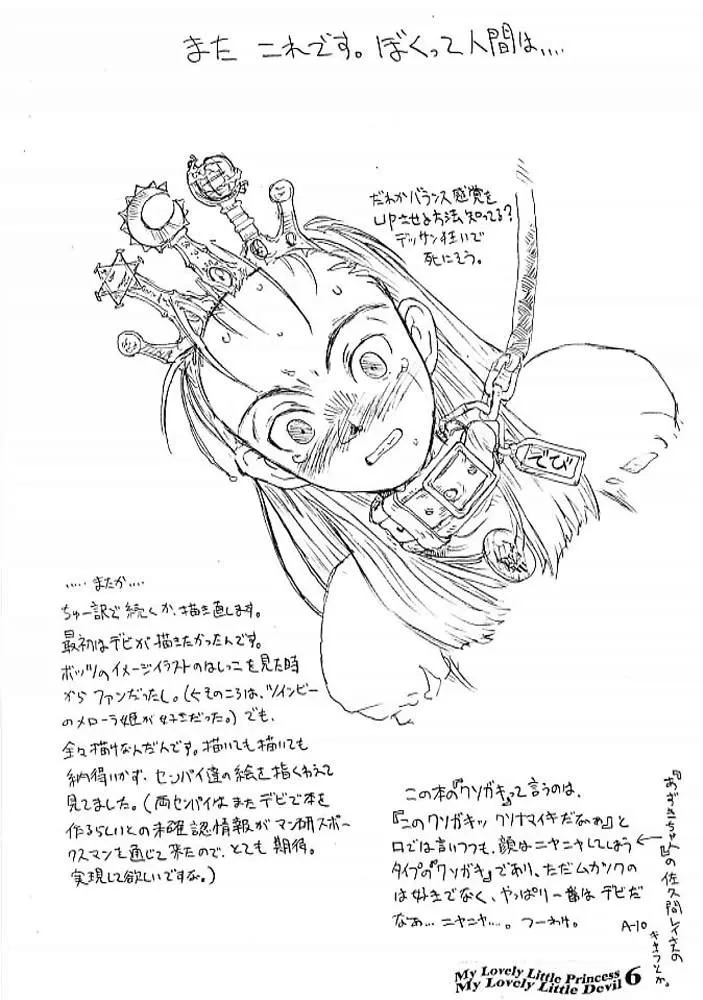 また これです。ぼくって人間は‥‥
だれかバランス感覚を
UPさせる方法知ってる?
デッサン狂いで
死にそう。
でび
‥‥‥またか‥‥
ちゅー訳で続くか、描き直します。
最初はデビが描きたかったんです。
ボッツのイメージイラストのはしっこを見た時
からファンだったし。(そのころは、ツインビー
のメローラ姫が好きだった。)でも、
全々描けなんだんです。描いても描いても
納得いかず、センパイ達の絵を指くわえて
見てました。(両センパイはまたデビで本を
作るらしいとの未確認情報がマン研スポー
クスマンを通じて来たので、とても期待。
実現して欲しいですな。)
この本の『クソガキ』って言うのは、
『このクソガキッ クソナマイキだなぁ』と
口では言いつつも、顔はニヤニヤしてしまう
タイプの『クソガキ』であり、ただムカツクの
は好きでなく、やっぱり一番はデビだ
なぁ…ニヤニヤ…。つーわけ。
『あずきちゃん』の佐久間レイさんの
キャラとか。
A-10
My Lovely Little Princess
My Lovely Little Devil 6